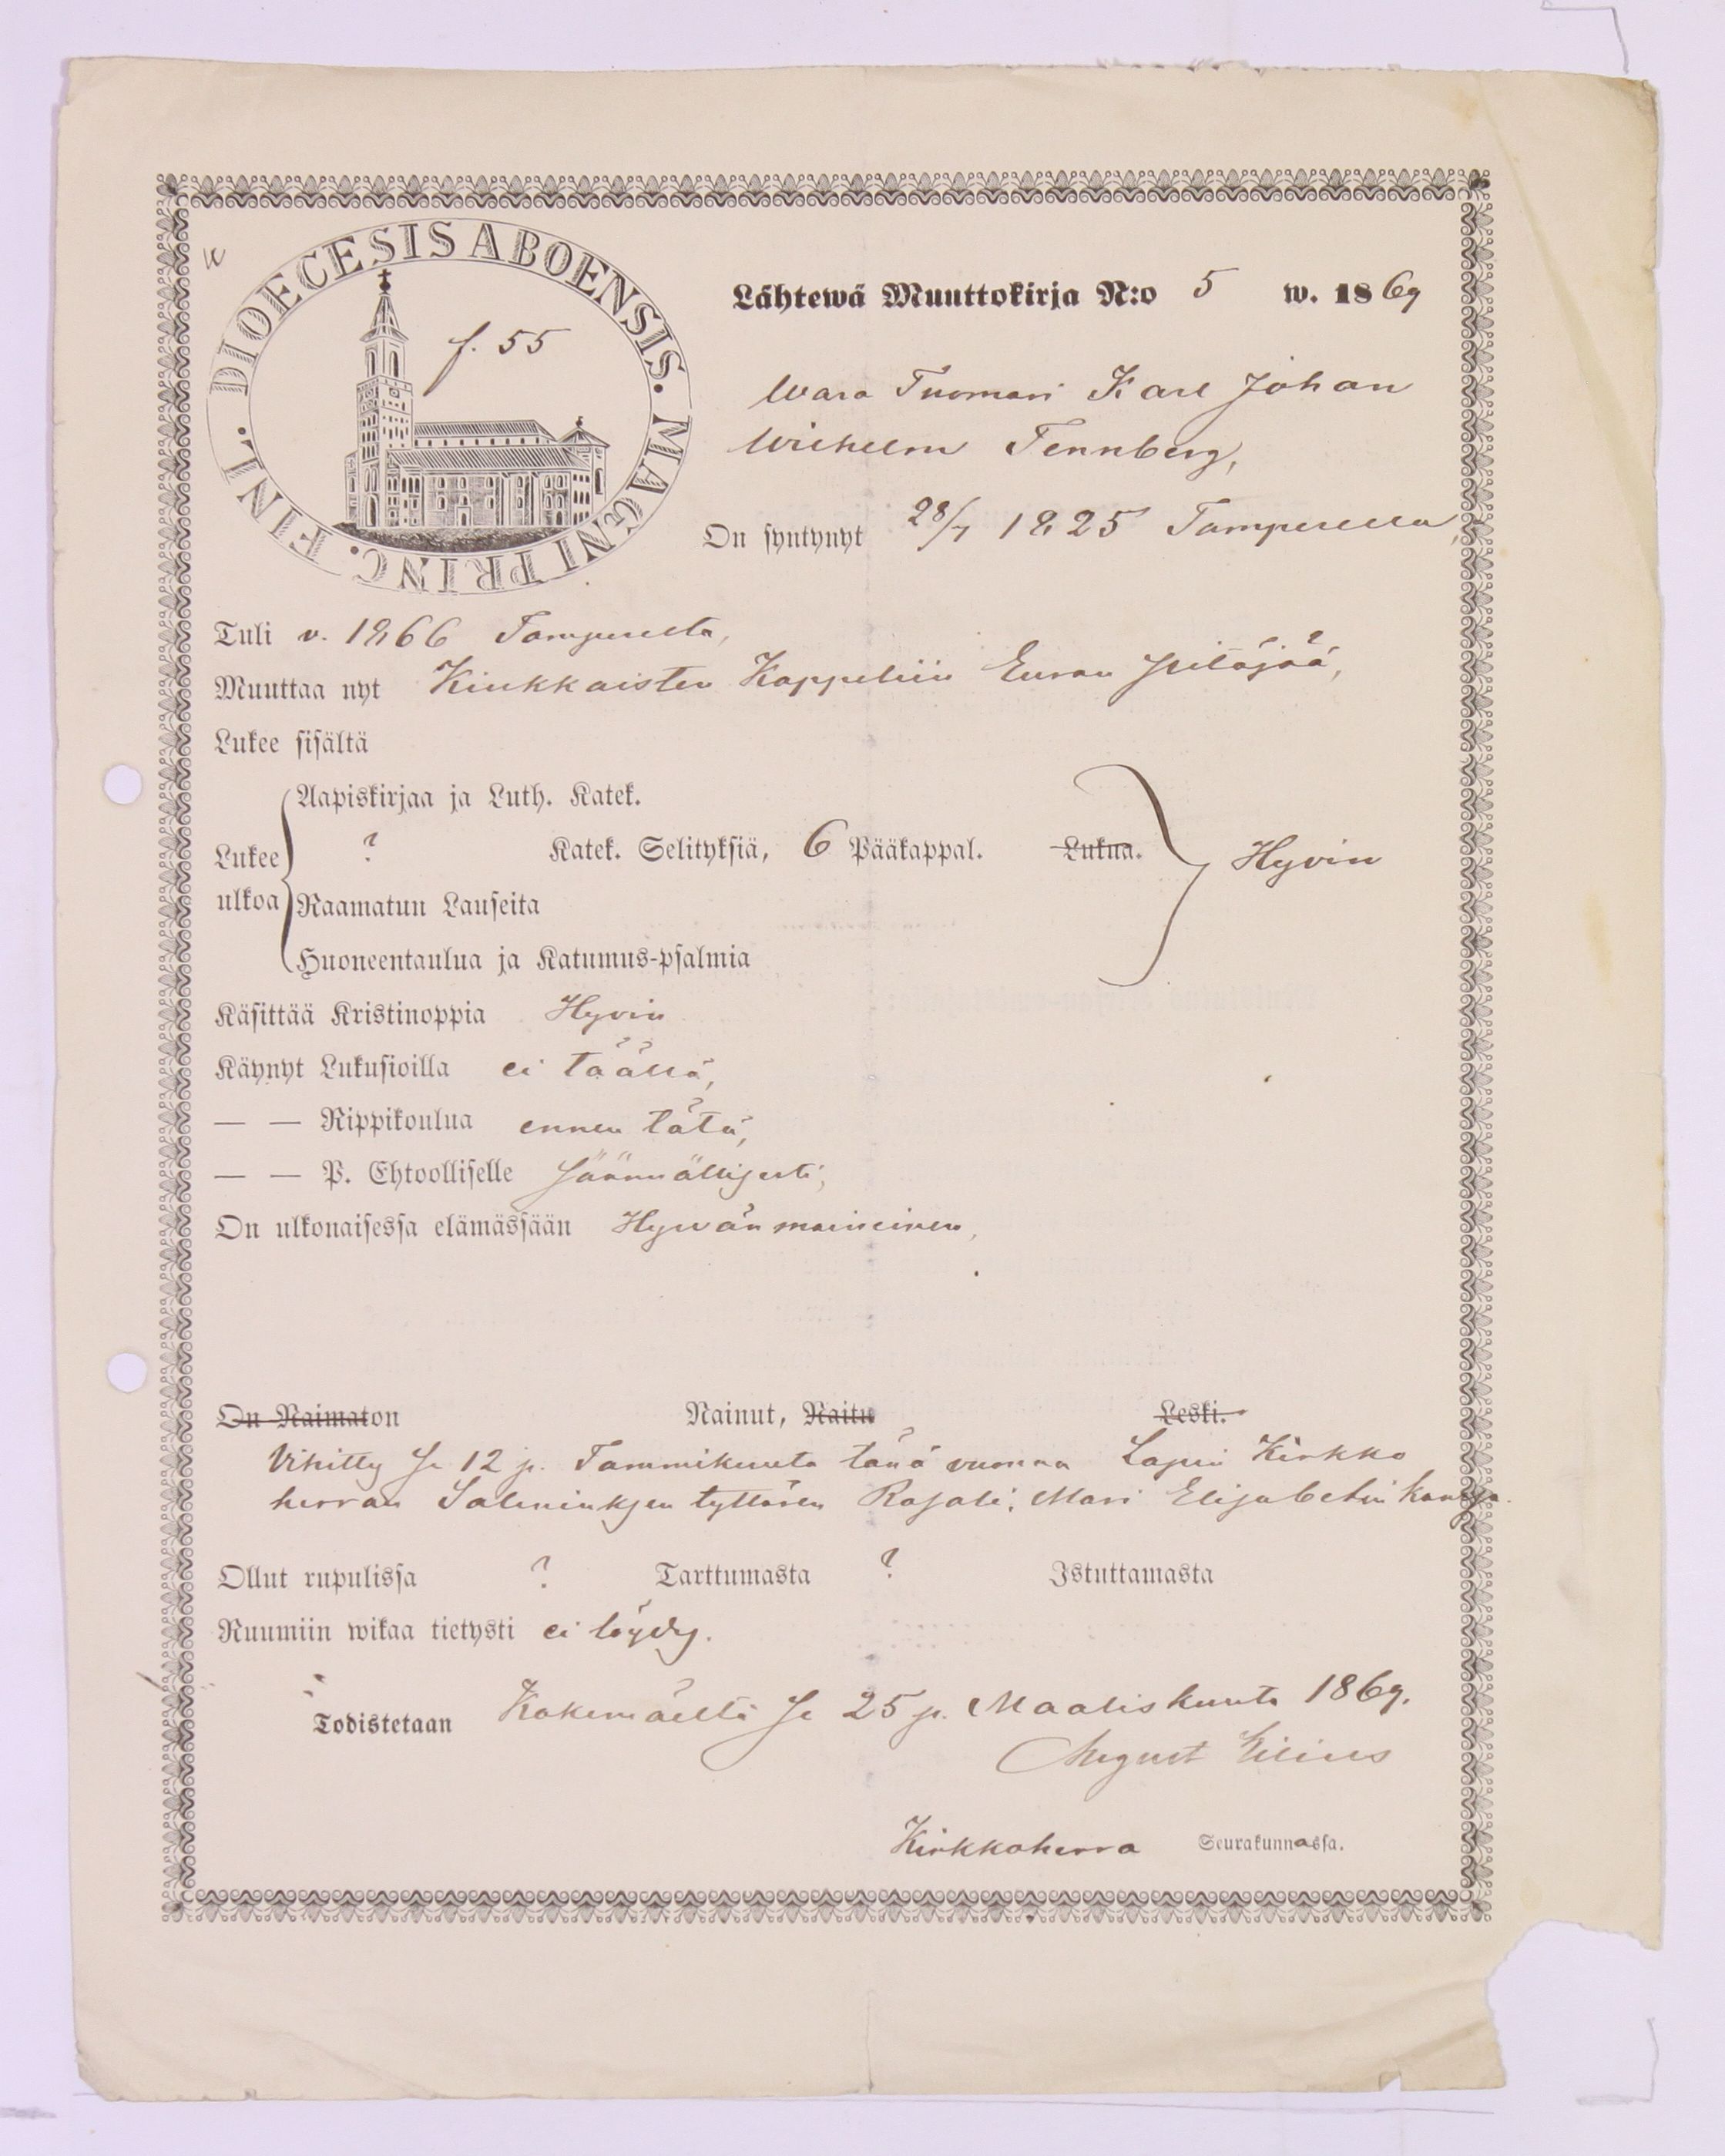 DIOECESIS ABOENSIS. MAGNI PRINC. FINL.
f. 55
Lähtewä Muuttokirja N:o 5 w. 1869
Wara Tuomari Karl Johan
Wilhelm Tennberg,
On syntynyt 28/7 1825 Tampereella,
Tuli v. 1866 Tampereelta,
Muuttaa nyt Kiukkaisten Kappeliin Euran pitäjää,
Lukee sisältä
Aapiskirjaa ja Luth. Katek.
Lukee ulkoa ? Katek. Selityksiä, 6 Pääkappal. Lukua. Hyvin
Raamatun Lauseita
Huoneentaulua ja Katumus-psalmia
Käsittää Kristinoppia Hyvin
Käynyt Lukusioilla ei täällä,
— — Rippikoulua ennen tätä,
— — P. Ehtoolliselle säännöllisesti,
On ulkonaisessa elämässään Hywän maineinen,
On Naimaton Nainut, Naitu Leski.
Vihitty se 12 p. Tammikuuta tänä vuonna Lapin Kirkko
herran Saleniuksen tyttären Rosali. Mari Elisabetin kanssa.
Ollut rupulissa ? Tarttumasta ? Istuttamasta
Ruumiin wikaa tietysti ei löydy.
Todistetaan Kokemäeltä se 25 p. Maaliskuuta 1869.
August Lilius
Kirkkoherra Seurakunnassa.